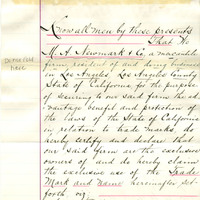 Know all men by these presents
That We
M. A. Newmark & Co, a mercantile
firm, resident of and doing business
in Los Angeles, Los Angeles County
State of California for the purpose
of securing to our said firm the ad-
vantage benefit and protection of
the laws of the State of California
in relation to trade marks, do
hereby certify and declare that
our said firm are the exclusive
owners of and do hereby claim
the exclusive use of the Trade
Mark and Name hereinafter set
forth